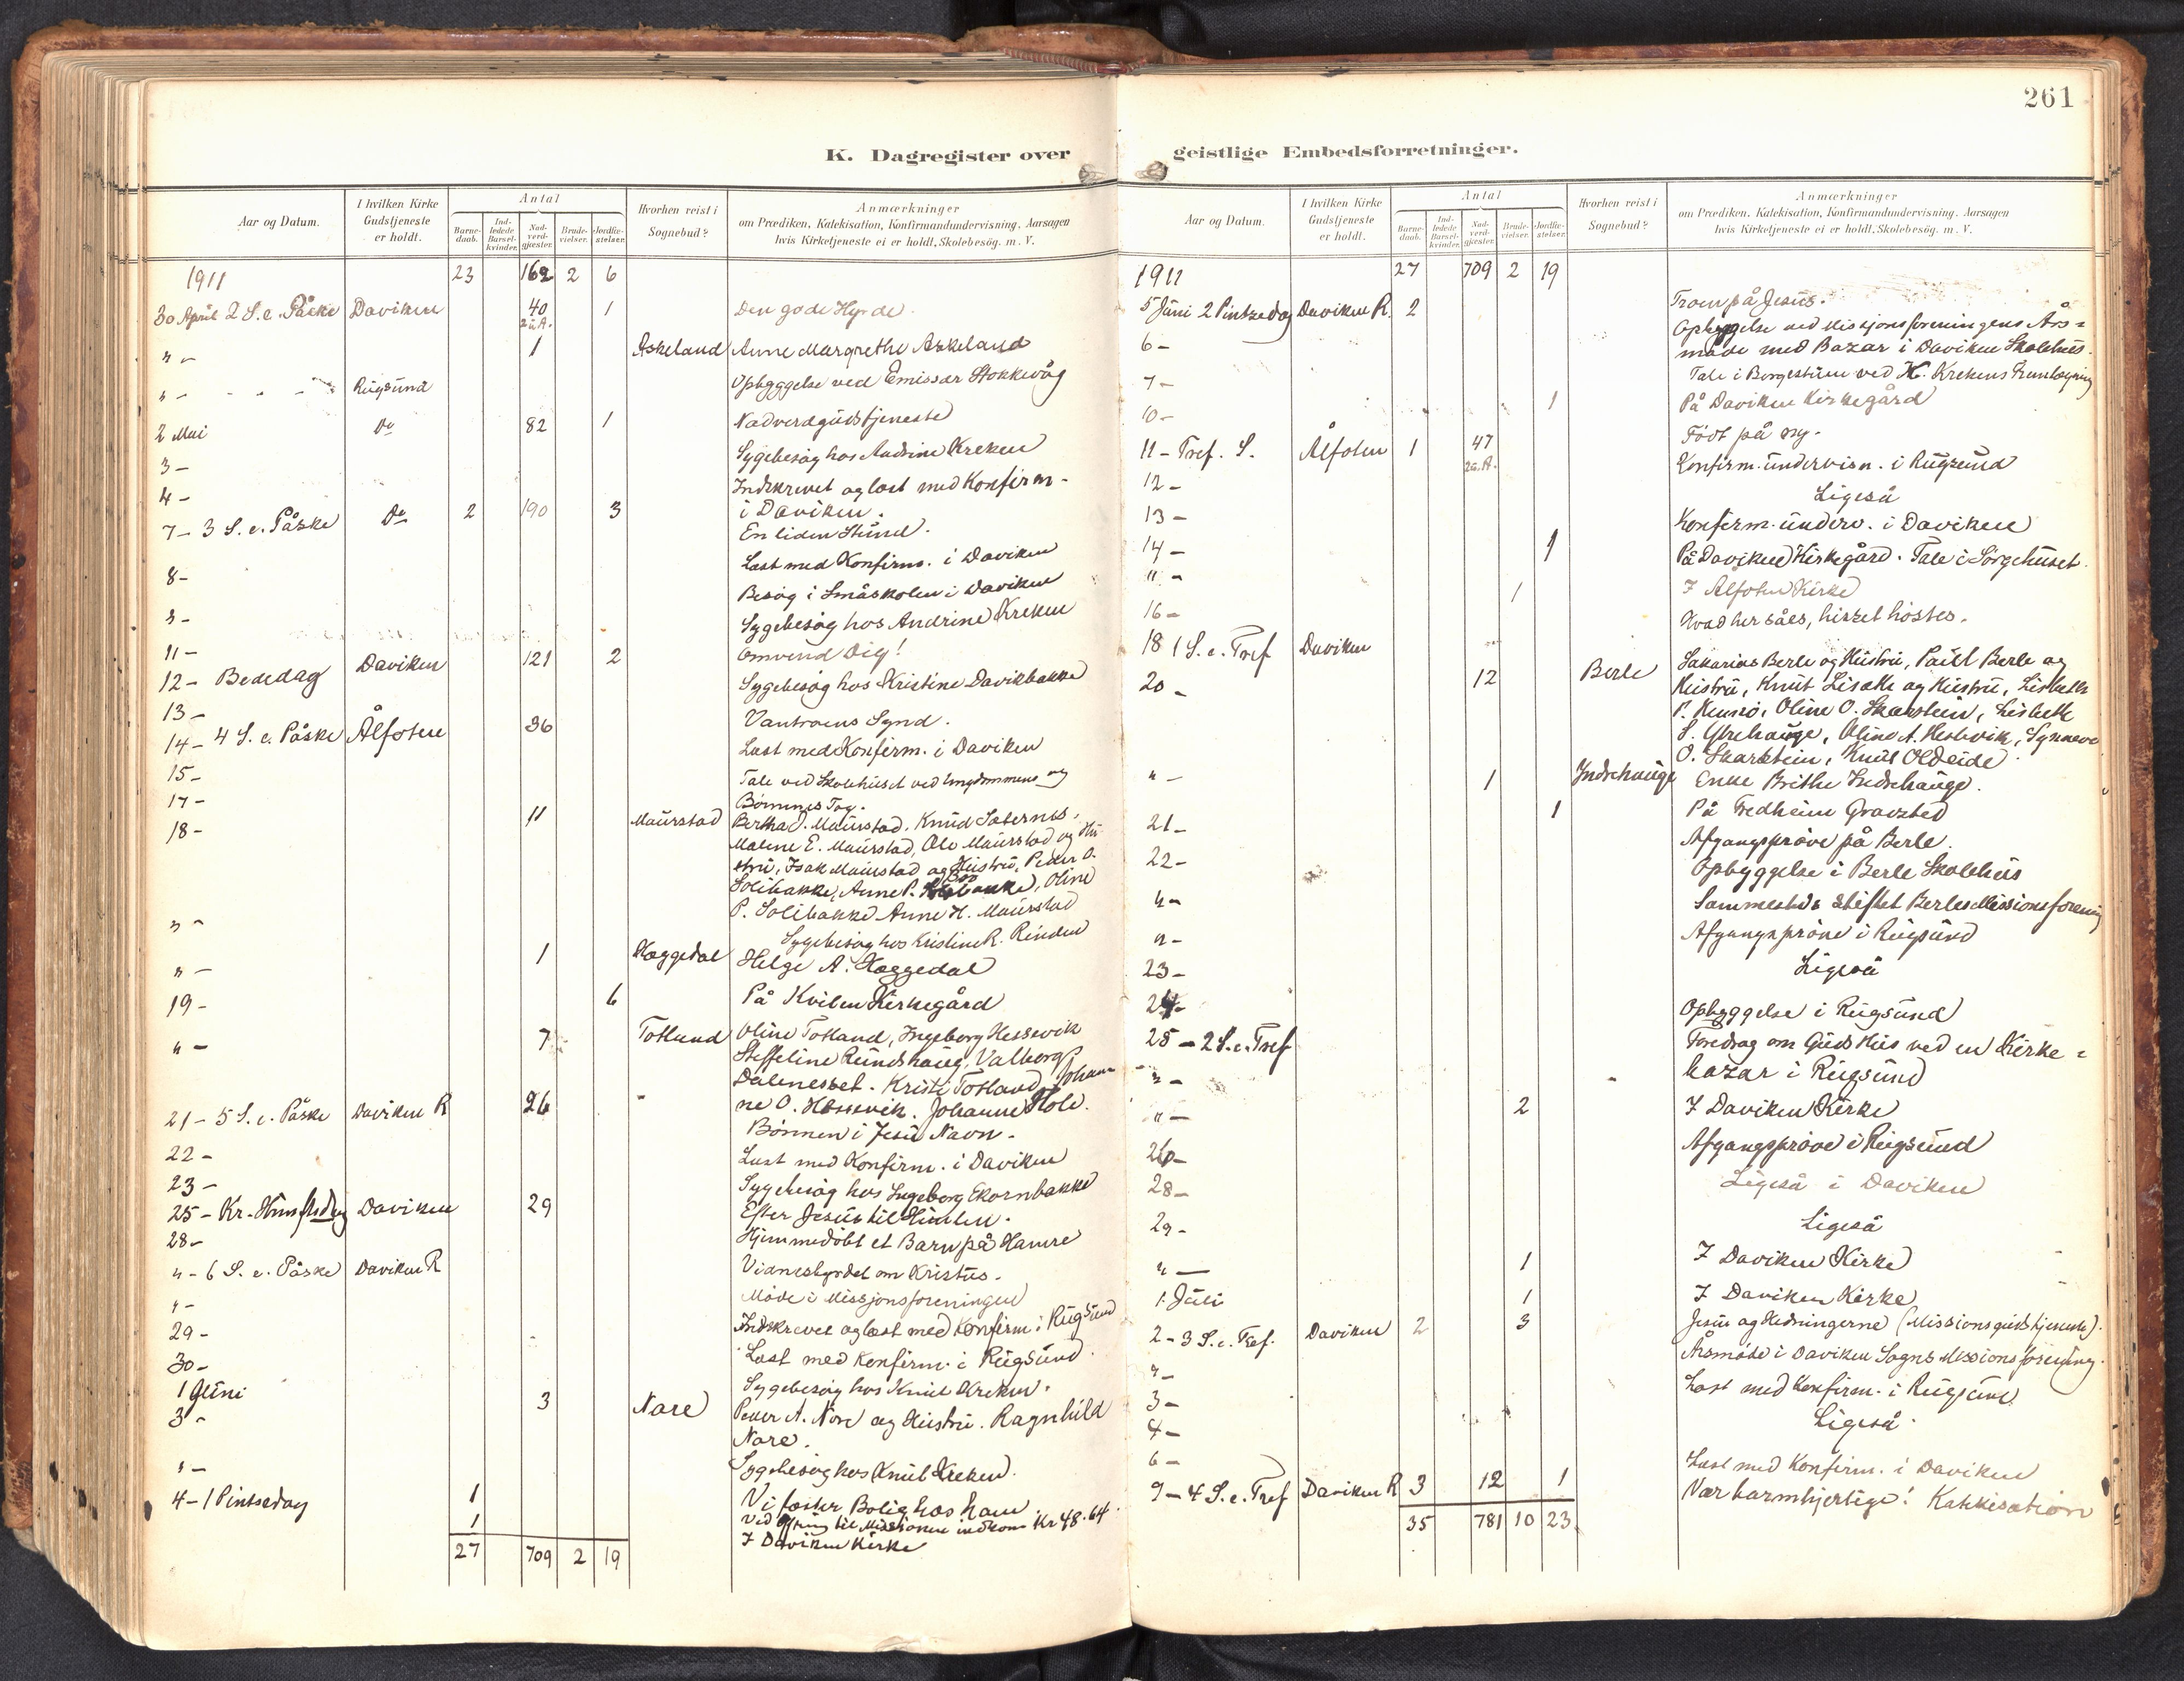 261
K. Dagregister over
Aar og Datum. I hvilken Kirke Gudstjeneste er holdt. Antal Barnedaab. Indledede Barselkvinder. Nadverdgjester. Brudevielser. Jordfæstelser. Hvorhen reist i Sognebud? Anmærkninger om Prædiken, Katekisation, Konfirmandundervisning, Aarsagen hvis Kirketjeneste ei er holdt, Skolebesög. m. V.
1911 23 162 2 6
30 April 2 S. e. Påske Daviken 40 1 Den gode Hyrde.
2 u A.
" - 1 Askeland Anne Margrethe Askeland
" - - - - Rugsund Opbyggelse ved Emissær Stokkevåg
2 Mai Do 82 1 Nadverdgudstjeneste
3 - Sygebesøg hos Andrine Kreken
4 - Indskrevet og læst med Konfirm-
i Daviken.
7 - 3 S. e. Påske Do 2 190 3 En liden Stund.
8 - Læst med Konfirm. i Daviken
" - Besøg i Småskolen i Daviken
11 - Sygebesøg hos Andrine Kreken
12 - Bededag Daviken 121 2 Omvend Dig!
13 - Sygebesøg hos Kristine Davikbakke
14 - 4 S. e. Påske Ålfoten 36 Vantroens Synd.
15 - Læst med Konfirm. i Daviken
17 - Tale ved Skolehuset ved Ungdommens og
Børnenes Tog.
18 - 11 Maurstad Bertha J. Maurstad. Knud Sæternes.
Malene E. Maurstad, Ole Maurstad og Hu-
stru, Isak Maurstad og Hustru, Peder O.
Solibakke, Anne P. Solibakke, Oline
P. Solibakke Anne H. Maurstad
" - Sygebesøg hos Kristine R. Rinden
" - 1 Hæggedal Helge A. Hæggedal
19 - 6 På Kvilen Kirkegård
" - 7 Totland Oline Totland, Ingeborg Hessevik
Steffeline Rundshaug, Valborg
Dalenesset. Kristi Totland, Johan-
ne O. Hessevik. Johanne Hole.
21 - 5 S. e. Påske Daviken R 26 Bønnen i Jesu Navn.
22 - Læst med Konfirm. i Daviken
23 - Sygebesøg hos Ingeborg Ekornbakke
25 - Kr. Himflsdag Daviken 29 Efter Jesus til Himlen.
28 - Hjemmedøbt et Barn på Hamre
" - 6 S. e. Påske Daviken R Vidnesbyrdet om Kristus.
" - Møde i Missjonsforeningen
29 - Indskrevet og læst med Konfirm. i Rugsund
30 - Læst med Konfirm. i Rugsund.
1 Juni Sygebesøg hos Knut Kreken.
3 - 3 Nore Peder A. Nore og Hustru. Ragnhild
Nore.
" - Sygebesøg hos Knut Kreken.
4 - 1 Pintsedag 1 Vi fæster Bolig hos ham
Ved Ofring til Missionen indkom Kr 48.64
1 I Daviken Kirke
27 709 2 19
geistlige Embedsforretninger.
Aar og Datum. I hvilken Kirke Gudstjeneste er holdt. Antal Barnedaab. Indledede Barselkvinder. Nadverdgjester. Brudevielser. Jordfæstelser. Hvorhen reist i Sognebud? Anmærkninger om Prædiken, Katekisation, Konfirmandundervisning, Aarsagen hvis Kirketjeneste ei er holdt, Skolebesög. m. V.
1911 27 709 2 19
5 Juni 2 Pintsedag Daviken R. 2 Troen på Jesus.
6 - Opbyggelse ved Missjonsforeningens Års-
møde med Bazar i Daviken Skolehus.
7 - Tale i Borgestuen ved H. Krekens
10 - 1 På Daviken Kirkegård
11 - Tref. S. Ålfoten 1 47 Født på ny.
2 u. A.
12 - Konfirm. undervisn. i Rugsund
13 - Ligeså
14 - Konfirm. underv. i Daviken
" - 1 På Daviken Kirkegård. Tale i Sørgehuset.
16 - 1 I Alfoten Kirke
18 1 S. e. Tref Daviken Hvad her såes, hisset høstes.
20 - 12 Berle Sakarias Berle og Hustru, Paul Berle og
Hustru, Knut Lisæke og Hustru, Lisbeth
P. , Oline O. Skarstein, Lisbeth
S. Ytrehauge, Oline A. Hestevik, Synneve
O. Skarstein, Knut Oldeide.
" - 1 Indrehauge Enke Brithe Indrehauge.
21 - 1 På Fredheim Gravsted
22 - Afgangsprøve på Berle.
" - Opbyggelse i Berle Skolehus
" - Sammesteds stiftet Berles Missionsforening
23 - Afgangsprøve i Rugsund
24 - Ligeså
25 - 2 S. e. Tref Opbyggelse i Rugsund
" - Foredrag om Guds Hus ved en Kirke-
bazar i Rugsund
" - 2 I Daviken Kirke
26 - Afgangsprøve i Rugsund
28 - Ligeså i Daviken
29 - Ligeså
" - 1 I Daviken Kirke
1 Juli 1 I Daviken Kirke
2 - 3 S. e. Tref. Daviken 2 3 Jesus og Hedningerne (Missionsgudstjeneste).
" - Årsmøde i Daviken Sogns Missionsforening.
3 - Læst med Konfirm. i Rugsund
4 - Ligeså.
6 - Læst med Konfirm. i Daviken
9 - 4 S. e. Tref Daviken R 3 12 1 Vær barmhjertige! Katekisation
35 781 10 23